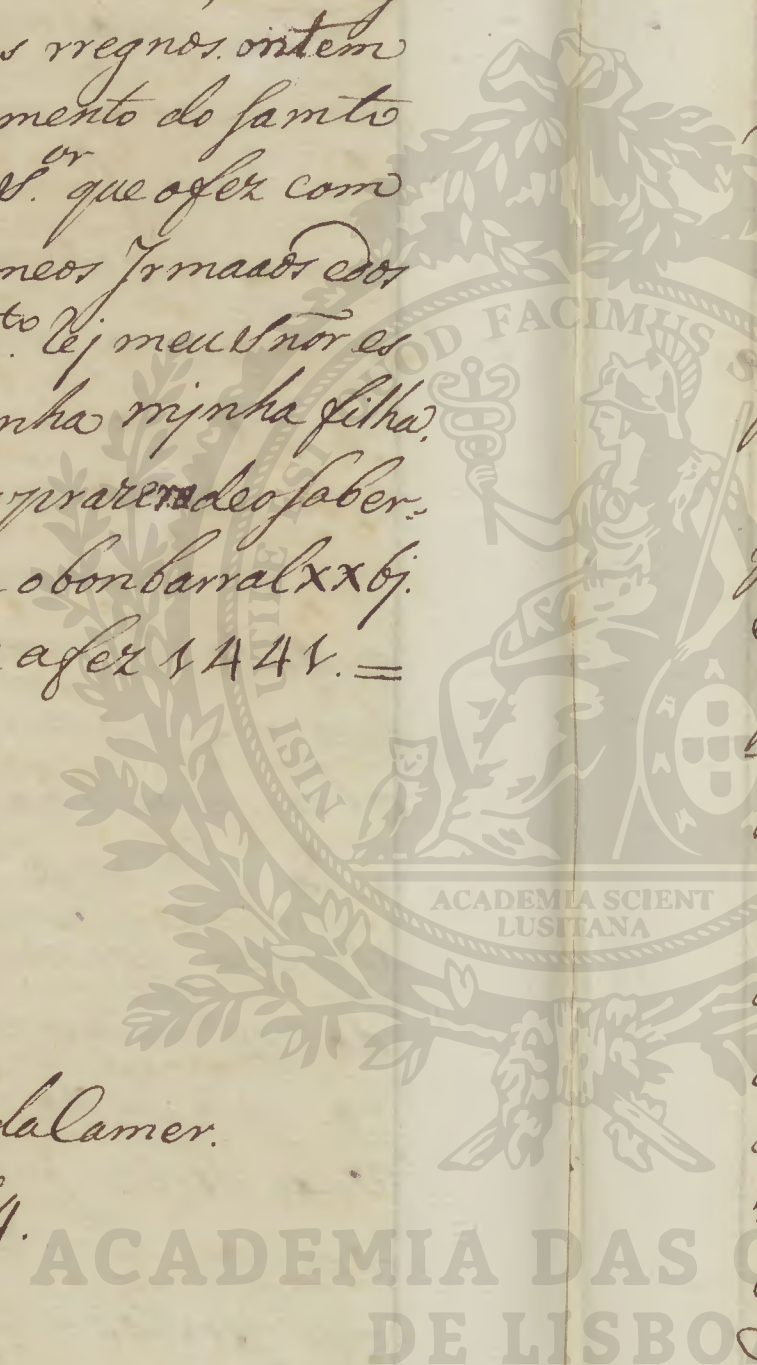 s rregnos. ontem
mento do samto
S.or que o fez com
meos Jrmaaos e dos
to. Rej meu Snõr es
nha mjnha filha.
prazer de o saber.
o bon barral xxbj.
a fez 1441. =
da Camer.
4.
QUOD FACIMUS
NISI UTILE EST
ACADEMIA SCIENT
LUSITANA
ACADEMIA DAS C
DE LISBO